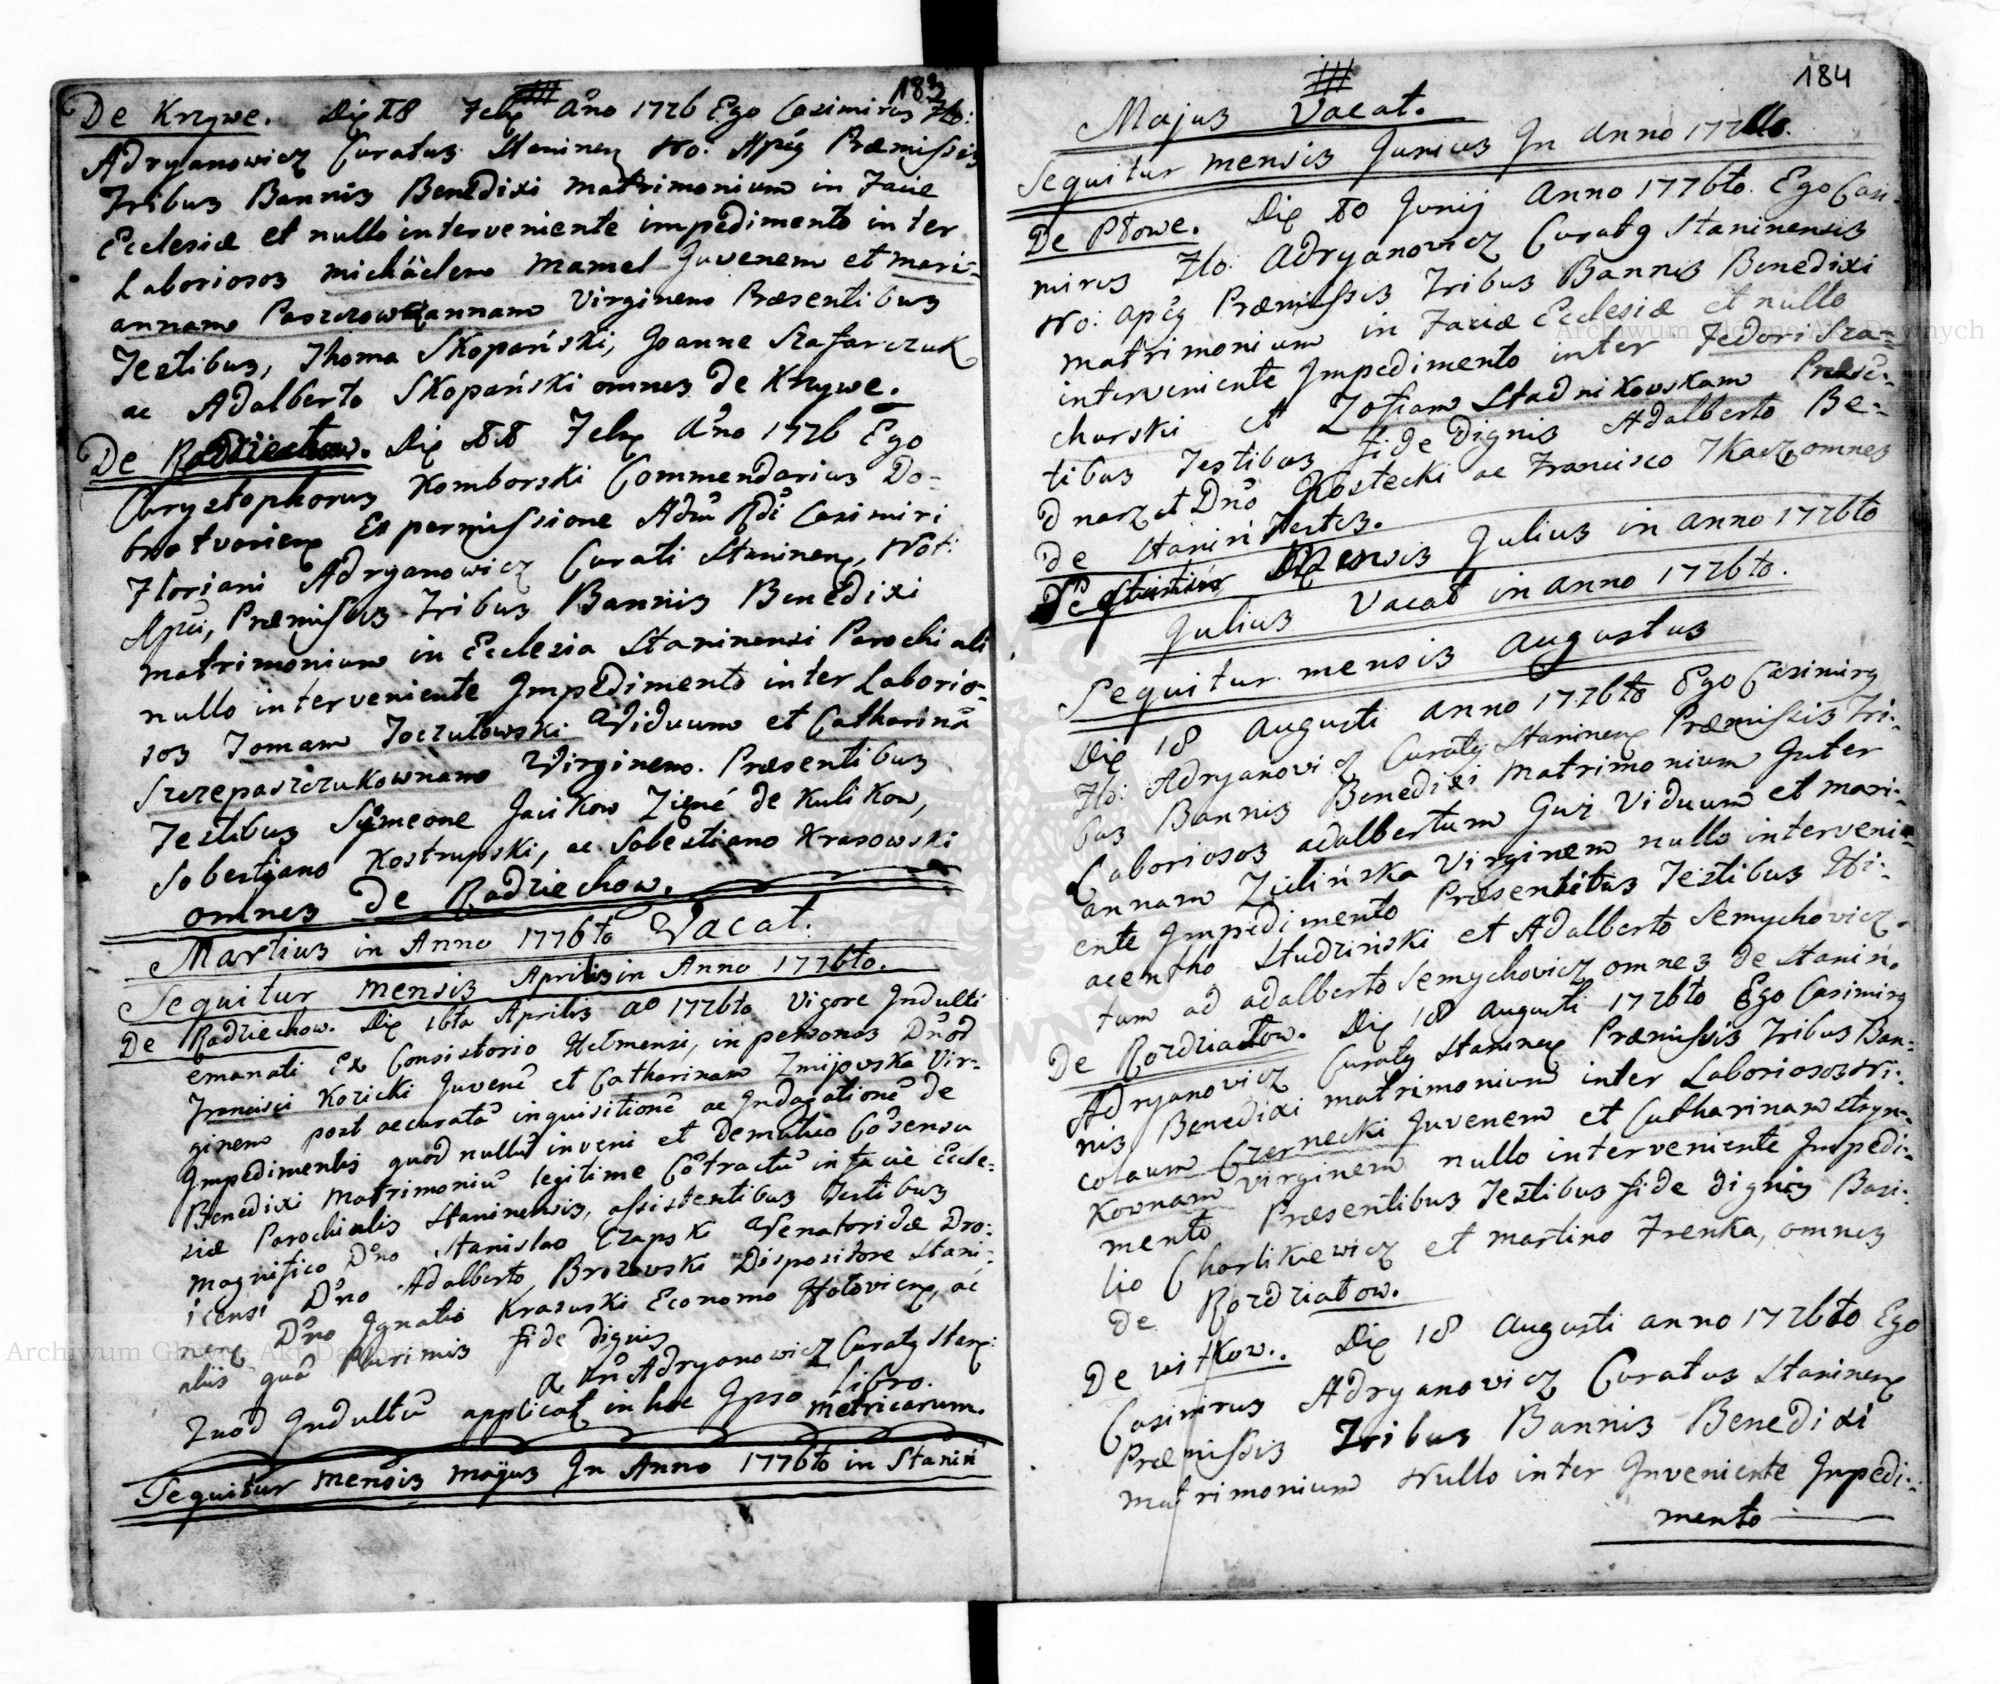 183
De Krzywe. Die 18 Febr Año 1776 Ego Casimirus Flo:
Adryanowicz Curatus Staninen No: Apcus Præmissis
Tribus Bannis Benedixi matrimonium in Facie
Ecclesiæ et nullo interveniente impedimento inter
Laboriosos michäelem mamel Juvenem et mari-
annam Virginem Præsentibus
Testibus, Thoma Skopański, Joanne Szafarczuk
ac Adalberto Skopański omnes de Krzywe.
De Die Febr Año 1776 Ego
Chrystophorus Komborski Commendarius Do-
brotvorien Ex permissione Adm Rdi Casimiri
Floriani Adryanowicz Curati Staninen, Not:
Apci, Præmissis Tribus Bannis Benedixi
matrimonium in Ecclesia Staninensi Parochiali
nullo interveniente Impedimento inter Laborio-
sos Tomam Toczułowski Viduum et Catharinã
Szczepaszczukownam Virginem. Præsentibus
Testibus Symeone Jackow Zięné de Kulikow,
Sobestyano Kostrupski, ac Sobestiano Krasowski
omnes De Radziechow.
Martius in Anno 1776to Vacat.
Sequitur mensis Aprilis in Anno 1776to.
De Radziechow. Die 16ta Aprilis ao 1776to vigore Indulti
emanati Ex Consistorio Helmensi, in personas Dnõr
Francisci Kozicki Juvenẽ et Catharinam Zmijovska Vir-
ginem post accuratã inquisitionẽ ac Indagationẽ de
Impedimentis quod nullũ inveni et De mutuo Cõsensu
Benedixi matrimoniũ legitime Cõtractũ in facie Eccle-
siæ Parochialis Staninensis, assistentibus Testibus
Magnifico Dño Stanislao Czapski Venatoridæ Dro-
icensi Dño Adalberto Brozovski Dispositore Stani-
nen, Dño Ignatio Krasuski Economo Hotovien, ac
aliis quã plurimis fide dignis
Adryanowicz Curatus Stanen:
Quod Indultũ applicat in hoc Ipso Libro
metricarum.
Sequitur mensis majus In Anno 1776to in Stanin
184
Majus Vacat.
Sequitur mensis Junius In anno
De Płowe. Die 10 Junij Anno 1776to. Ego Casi-
mirus Flo: Adryanovicz Curatus Staninensis
No: apcus Præmissis Tribus Bannis Benedixi
matrimonium in Faciæ Ecclesiæ et nullo
interveniente Impedimento inter Fedori Sza-
charski et Zofiam Stadnikovskam Præsẽ-
tibus Testibus fide Dignis Adalberto Be-
dnarz et Dño Kostecki ac Francisco Tkacz omnes
De Stanin Testes.
Sequitur Mensis Julius in anno 1776to
Julius Vacat in anno 1776to.
Sequitur mensis augustus
Die 18 augusti anno 1776to Ego Casimirus
Flo: Adryanovicz Curatus Staninen Præmissis Tri-
bus Bannis Benedixi matrimonium Inter
Laboriosos adalbertum Guz Viduum et mari-
annam Zielińska Virginem nullo interveni-
ente Impedimento Præsentibus Testibus Hi-
acentho Studziński et Adalberto Semychovicz
tum ad adalberto Semychovicz omnes de Stanin.
De Rozdziałow. Die 18 augusti 1776to Ego Casimirus
Adryanovicz Curatus Staninen Præmissis Tribus Ban-
nis Benedixi matrimonium inter Laboriosos Ni-
colaum Czernecki Juvenem et Catharinam Hryn-
kovnam virginem nullo interveniente Impedi-
mento Præsentibus Testibus fide dignis Basi-
lio Charlikiewicz et martino Frenka, omnes
De Rozdziałow.
De vitkow. Die 18 augusti anno 1776to Ego
Casimirus Adryanovicz Curatus Staninen
Præmissis Tribus Bannis Benedixi
matrimonium Nullo inter Inveniente Impedi-
mento
Archiwum Główne Akt Dawnych
Archiwum Główne Akt Dawnych